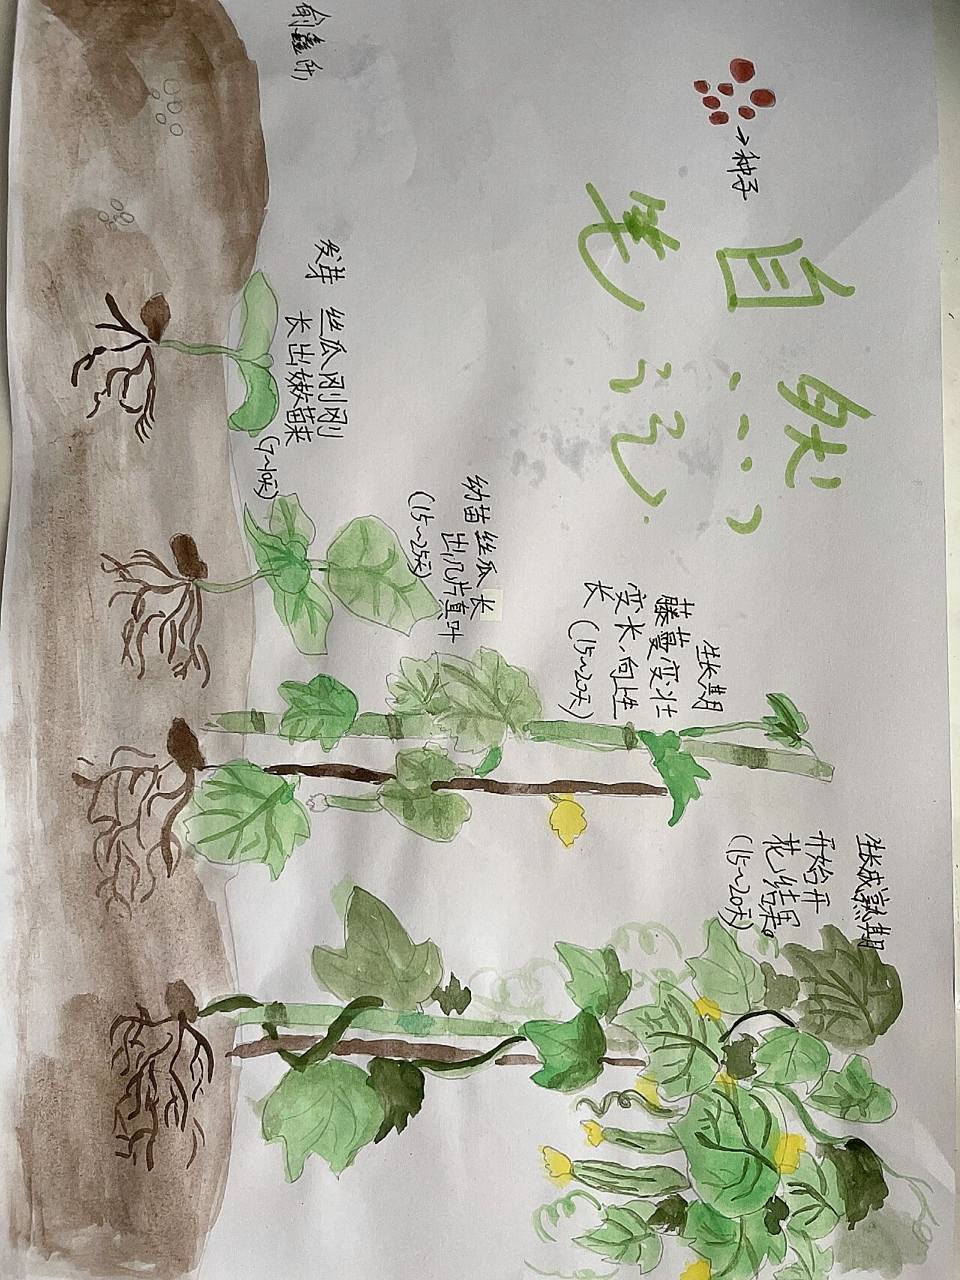 种子
自然
笔记
发芽 丝瓜刚刚
长出嫩苗来
(7~10天)
幼苗 丝瓜长
出几片真叶
(15~25天)
生长期
藤蔓变壮
变长、向上生
长 (15~20天)
生长成熟期
开始开
花结果。
(15~20天)